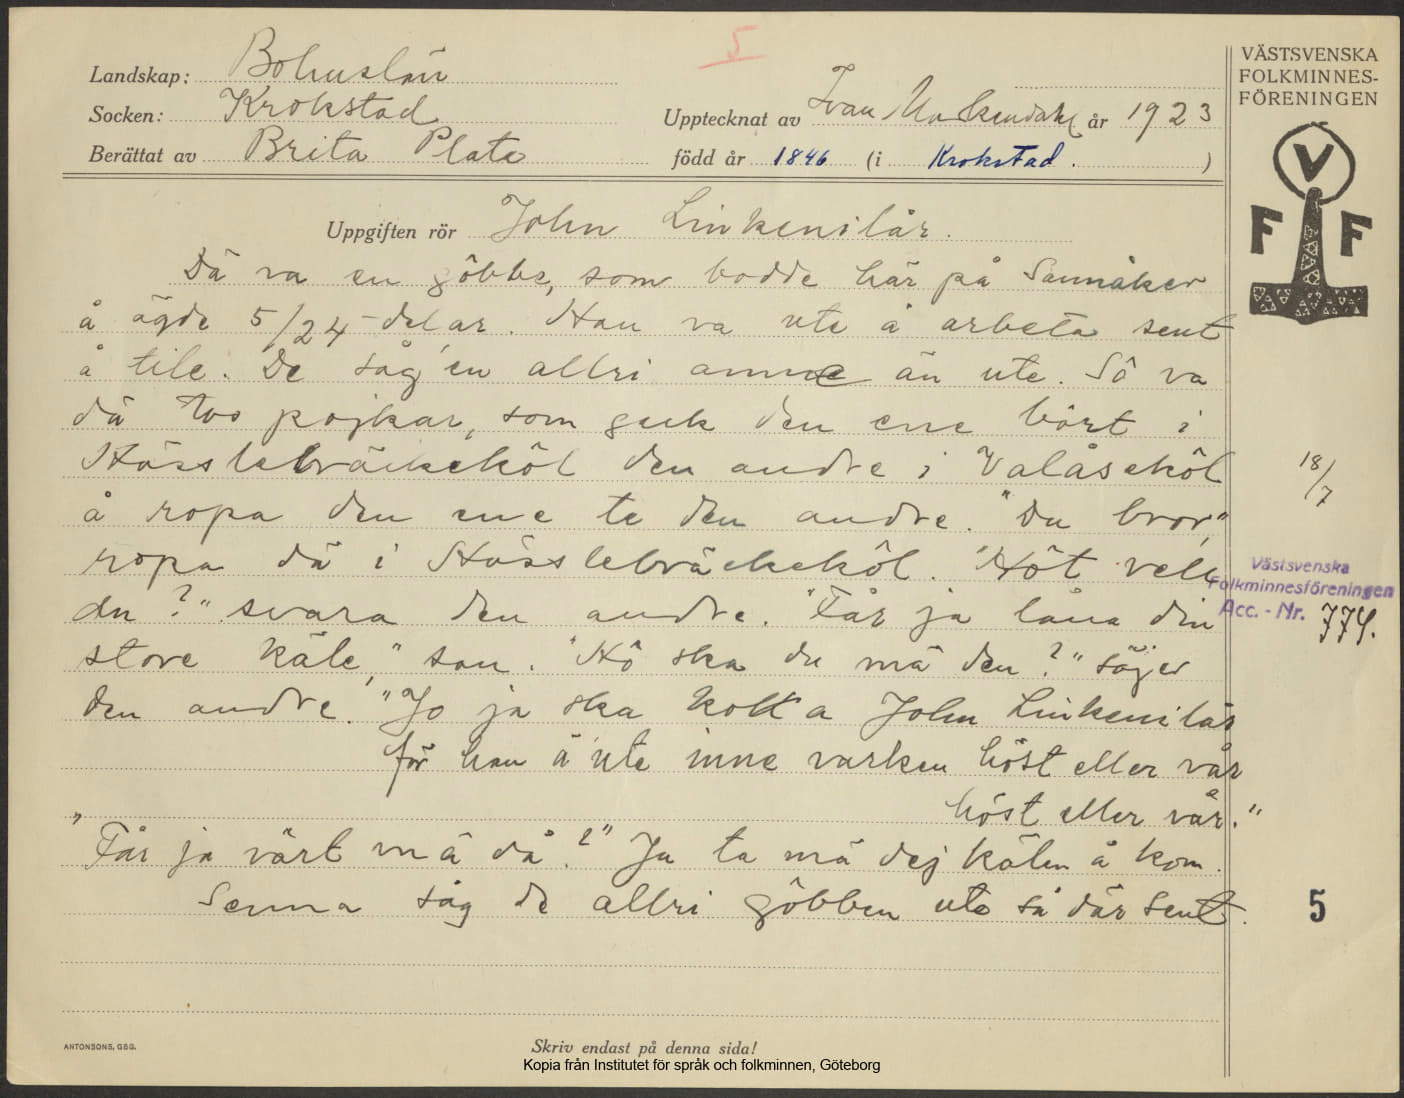 5
Landskap: Bohuslän
Socken: Krokstad
Upptecknat av Ivan år 1923
Berättat av Brita Plate
född år 1846 (i Krokstad.)
Uppgiften rör John Linkenilår.
Dä va en gôbbe, som bodde här på Sannåker
å ägde 5/24-delar. Han va ute å arbeta sent
å tile. De såg'en allri anne än ute. Sô va
dä tvo pojkar, som geck den ene bôrt i
Hässlebräckekôl den andre i Valåsekôl
å ropa den ene te den andre. "Du bror,"
ropa dä i Hässlebräckekôl. "Hôt vell
du?" svara den andre. "Får ja låna din
store käle," san. "Hô ska du mä den?" säjer
den andre. "Jo ja ska kolka John Linkenilår
för han ä ute inne varken höst eller vår
höst eller vår."
"Får ja värt mä då?" Ja ta mä dej kälen å kom.
Senna såg de allri gôbben ute så där sent.
ANTONSONS, GBG.
Skriv endast på denna sida!
Kopia från Institutet för språk och folkminnen, Göteborg
VÄSTSVENSKA
FOLKMINNES-
FÖRENINGEN
V
F F
18/7
Västsvenska
Folkminnesföreningen
Acc. - Nr. 774.
5